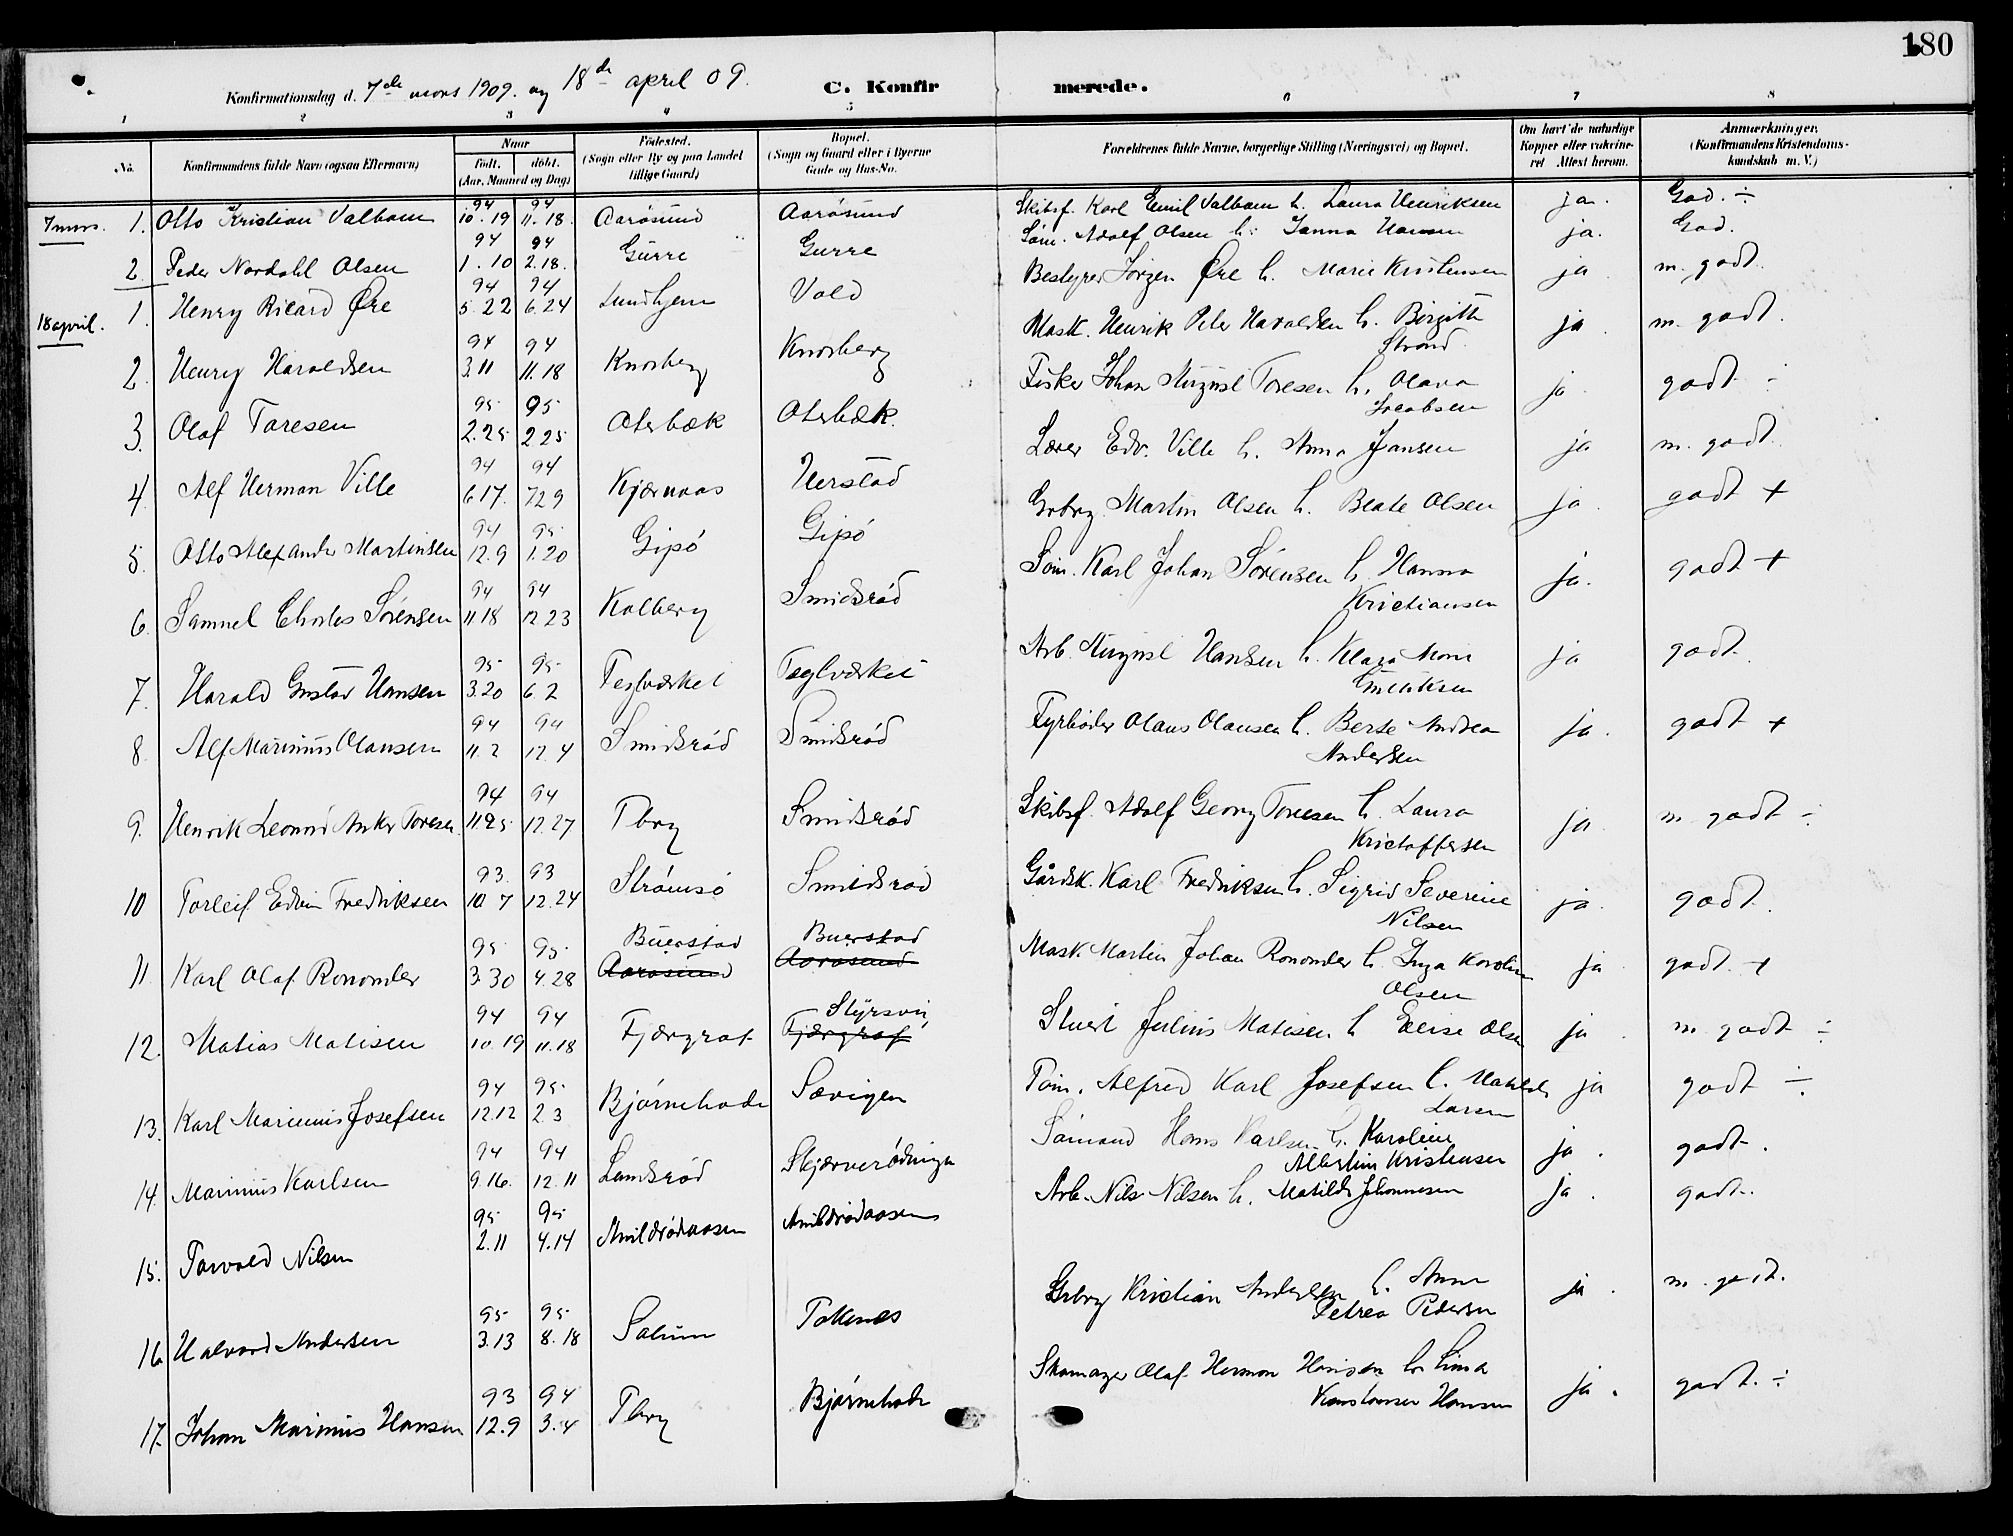 180
Konfirmationsdag d. 7de mars 1909. og 18de april 09. C. Konfirmerede.
1 2 3 4 5 6 7 8
No. Konfirmandens fulde Navn (ogsaa Efternavn) Naar født. døbt. (Aar, Maaned og Dag) Fødested. (Sogn eller By og paa Landet tillige Gaard) Bopæl. (Sogn og Gaard eller i Byerne Gade og Hus-No. Forældrenes fulde Navne, borgerlige Stilling (Næringsvei) og Bopæl. Om havt de naturlige Kopper eller vakcineret Attest herom. Anmærkninger. (Konfirmandens Kristendomskundskab m. V.)
7 mars. 1. Otto Kristian Valbom 94 10.19 94 11.18. Aarösund Aarösund Skibsf. Karl Emil Valbom h. Laura Henriksen ja. God. ÷
2. Peder Nordahl Olsen 94 1.10 94 2.18. Gurre Gurre Söm. Adolf Olsen h. Janna Hansen ja. God.
18 april. 1. Henry Ricard Øre 94 5.22 94 6.24 Lundhjem Vold Bestyrer Jörgen Øre h. Marie Kristensen ja m. godt.
2. Henry Haraldsen 94 3.11 94 11.18 Knorberg Knorberg Mask. Henrik Peter Haraldsen h. Birgitte Strand ja m. godt.
3. Olaf Toresen 95 2.25 95 2.25 Oterbæk Oterbæk. Fisker Johan August Toresen h. Olava Jacobsen ja godt ÷
4. Alf Herman Ville 94 6.17. 94 7.29 Kjærnaas Herstad Lærer Edv. Ville h. Anna Jansen ja m. godt.
5. Otto Alexander Martinsen 94 12.9 95 1.20 Gipö Gipö Grbrg. Martin Olsen h. Beate Olsen ja godt +
6. Samuel Charles Sörensen 94 11.18 94 12.23 Kolberg Smidsröd Söm. Karl Johan Sörensen h. Hanna Kristiansen ja. godt +
7. Harald Gustav Hansen 95 3.20 95 6.2 Teglverket Teglverket Arb. August Hansen h. Klara Marie ja godt.
8. Alf Marinius Olausen 94 11.2 94 12.4 Smidsröd Smidsröd Fyrböder Olaus Olausen h. Berte Andrea Andersen ja. godt +
9. Henrik Leonard Anker Toresen 94 11.25 94 12.27 Tbrg Smidsröd Skibsf. Adolf Georg Toresen h. Laura Kristoffersen ja m godt ÷
10 Torleif Edvin Fredriksen 93. 10.7 93 12.24 Strömsö Smidsröd Gårdsk. Karl Fredriksen h. Sigrid Severine Nilsen ja. godt.
11. Karl Olaf Rononder 95 3.30 95 4.28 Buerstad Aarøsund Buerstad Aarøsund Mask. Martin Johan Rononder h. Inga Karoline Olsen ja godt. +
12. Matias Matisen 94 10.19 94 11.18 Fjærgraf Styrsvig Fjærgraf Stuert Julius Matisen h Elise Olsen ja m. godt ÷
13. Karl Marinius Josefsen 94 12.12 95 2.3 Bjørnebode Sevigen Töm. Alfred Karl Josefsen h. Matilde Larsen ja godt ÷
14. Marinius Karlsen 94 9.16. 94 12.11 Landsröd Skjærverödninga Sömand Hans Karlsen h. Karoline Albertine Kristensen ja. godt.
15. Torvald Nilsen 95 2.11 95 4.14 Amildrödaasen Amildrödaasen Arb. Nils Nilsen h. Matilde Johannesen ja. godt.
16. Halvard Andersen 95 3.13 95 8.18 Solum Tollenes Grbrg Kristian Andersen h. Anna Petrea Pedersen ja. m. godt.
17. Johan Marinius Hansen 93 12.9 94 3.4 Tbrg Bjørnebode Skomager Olaf Herman Hansen h. Lina Hansen ja. godt ÷